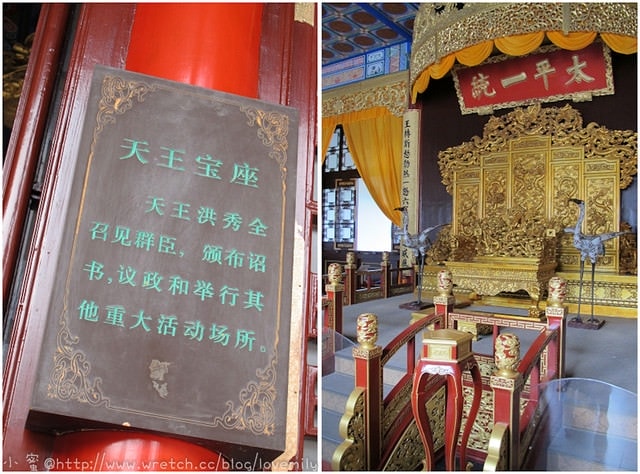 天王宝座
天王洪秀全
召见群臣，颁布诏
书，议政和举行其
他重大活动场所。
太平一统
小蜜@http://www.wretch.cc/blog/lovemily